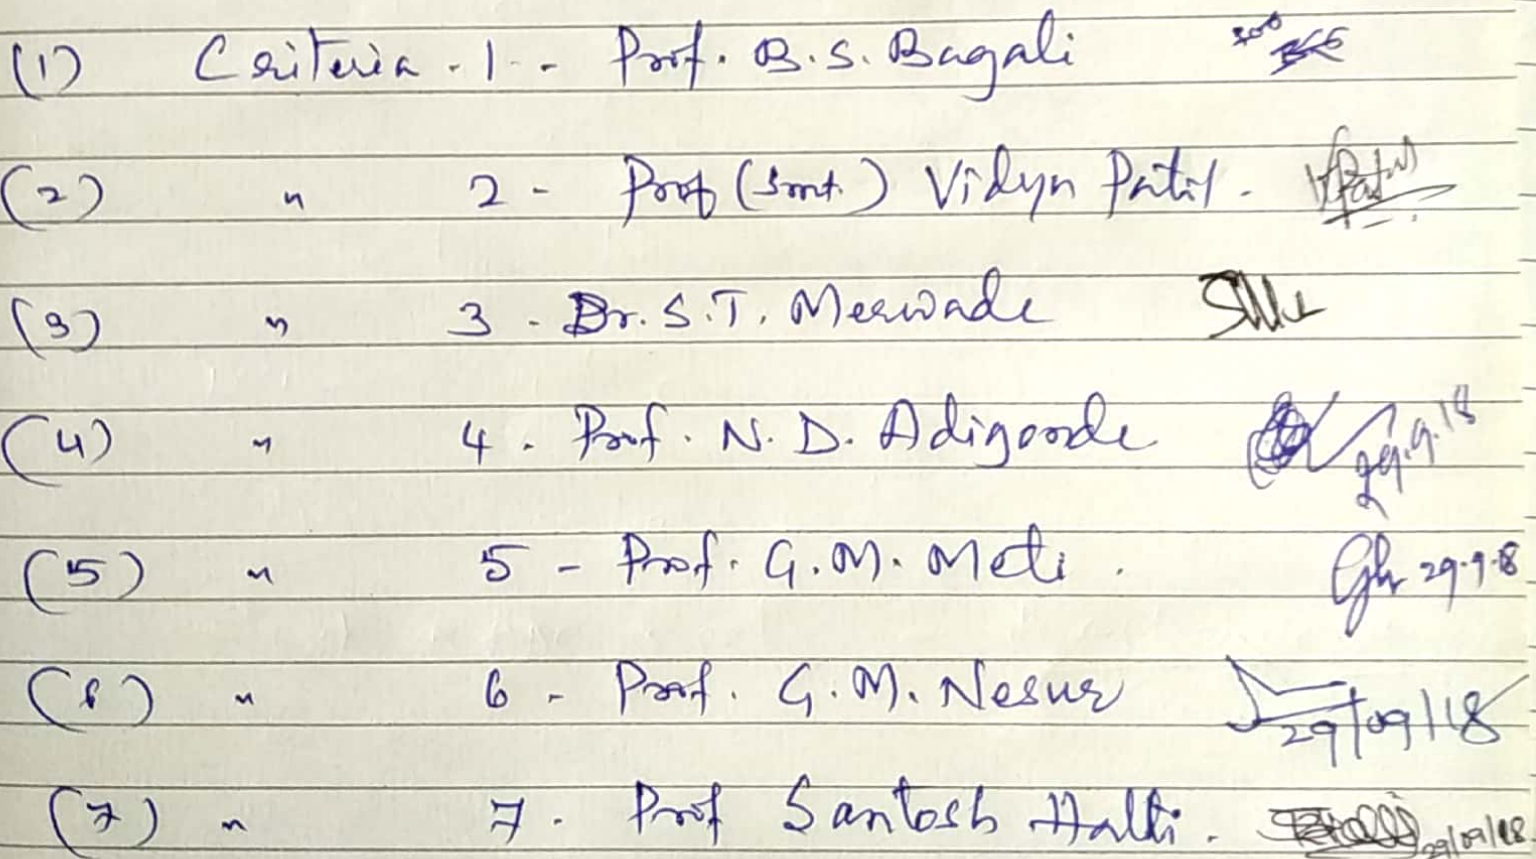 (1) Criteria . 1 . - Prof. B.S. Bagali
(2) " 2 - Prof (Smt.) Vidya Patil . VPatil
(3) " 3 - Dr. S.T. Merwade
(4) " 4 . Prof. N. D. Adigoode 29.9.18
(5) " 5 - Prof. G.M. Meti . 29.9.8
(6) " 6 - Prof. G.M. Nesur 29/09/18
(7) " 7 . Prof Santosh Halki . 29/09/18